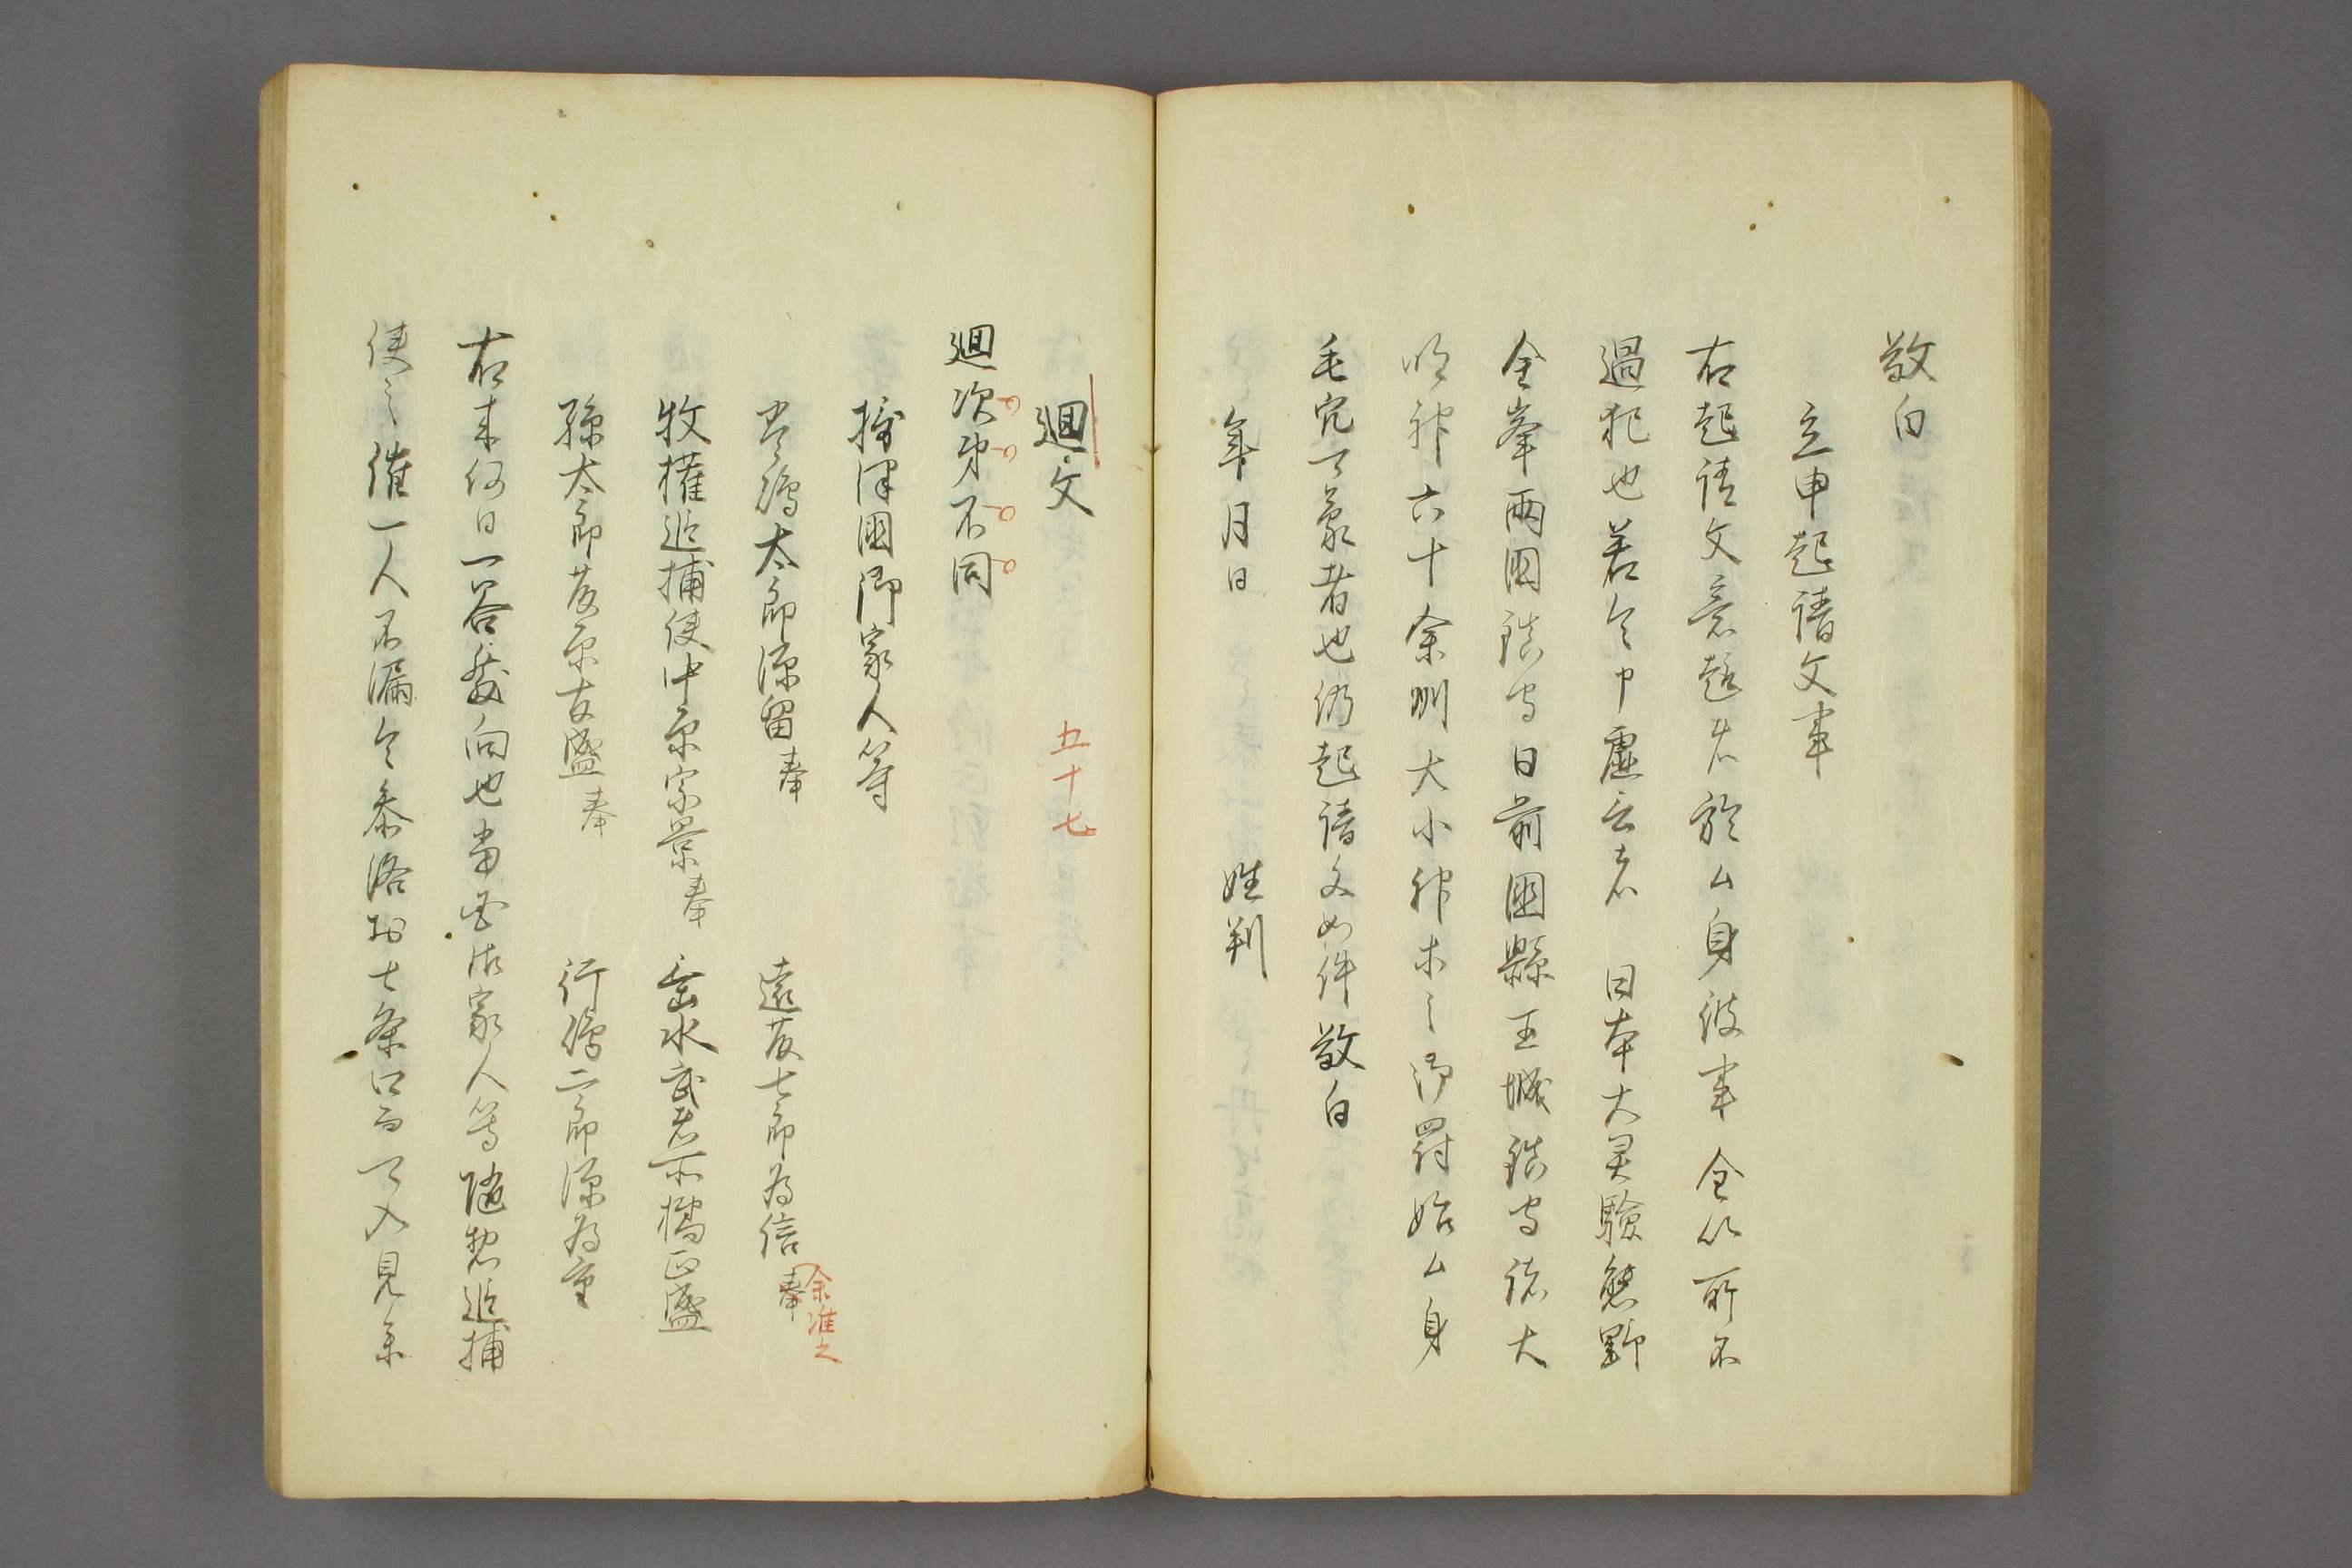 敬白
立申起請文事
右起請文意趣者於ム身彼事全以所不
過犯也若令申虚言者 日本大霊驗熊野
金峯両國鎮守日前國縣王城鎮守諸大
明神六十余州大小神等之御罸始ム身
毛穴可蒙者也仍起請文如件敬白
年月日 姓判
廻文 五十七
廻次第不同
摂津國御家人等
太郎源留奉 遠藤七郎為信奉 余准之
牧権追捕使中原宗景奉 垂水武者所橘正盛
孫太郎藤原友盛奉 行僧二郎源為重
右来何日一谷發向也當国御家人等随惣追捕
使之催一人不漏令参洛於七条口而可入見参